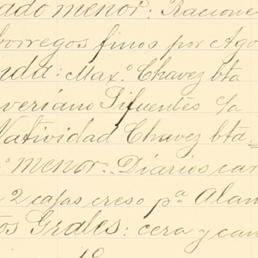 ado menor: Racione
borregos finos por Ago
nda: Max.º Chavez bta
veriano Sifuentes c/a
Natividad Chavez bta
º menor. Diarios car
2 cajas creso p.ª Alam
os Grales: cera y can